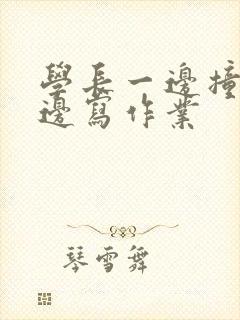 學長一邊撞
邊寫作業
琴雪舞